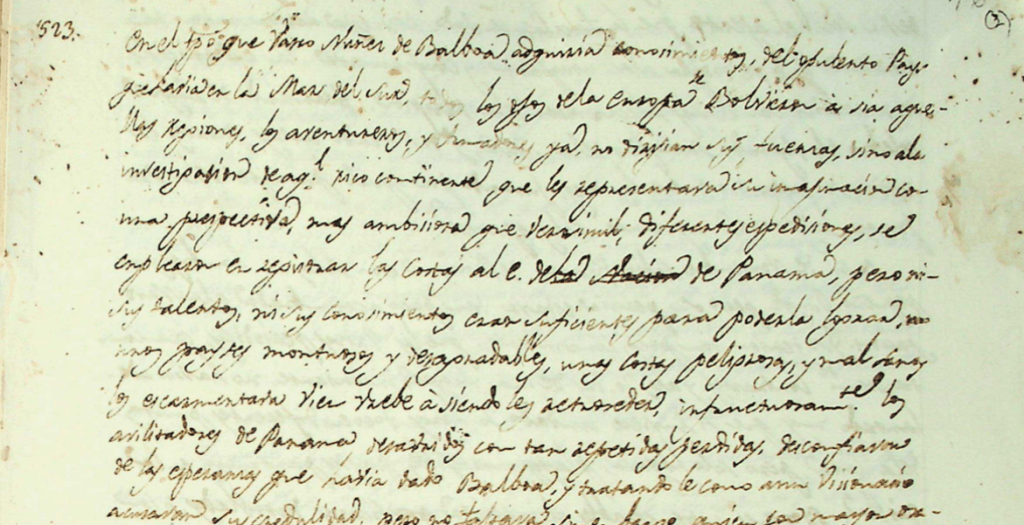 1523.
(3)
En el tpõ que Vasco Nuñes de Balboa adquiria conosimientos, del opulento Pays
que avia en la Mar del Sur, todos los ojos de la Europa se Bolvieron a sia aque-
llas rejiones, los aventureros, y ya, no dirijian sus fuerzas, sino ala
investigacion de aql. rico continente, que les representava su imajinacion co-
mo una perspectiva, mas ambisiosa que verisimil; diferentes espedisiones, se
emplearon en rejistrar las Costas al E. de la de Panama, pero ni
sus talentos, ni sus conosimientos eran suficientes para poderla lograr,
unos payses montuosos y desagradables, unas Costas peligrosas, y mal sanas
los escarmentava bien a siendoles retroceder, infructuosamte. los
avilitadores de Panama, con tan repetidas perdidas, desconfiavan
de las esperanzas que havia dado Balboa, y tratandole como a un Visionario
su credulidad, pero no